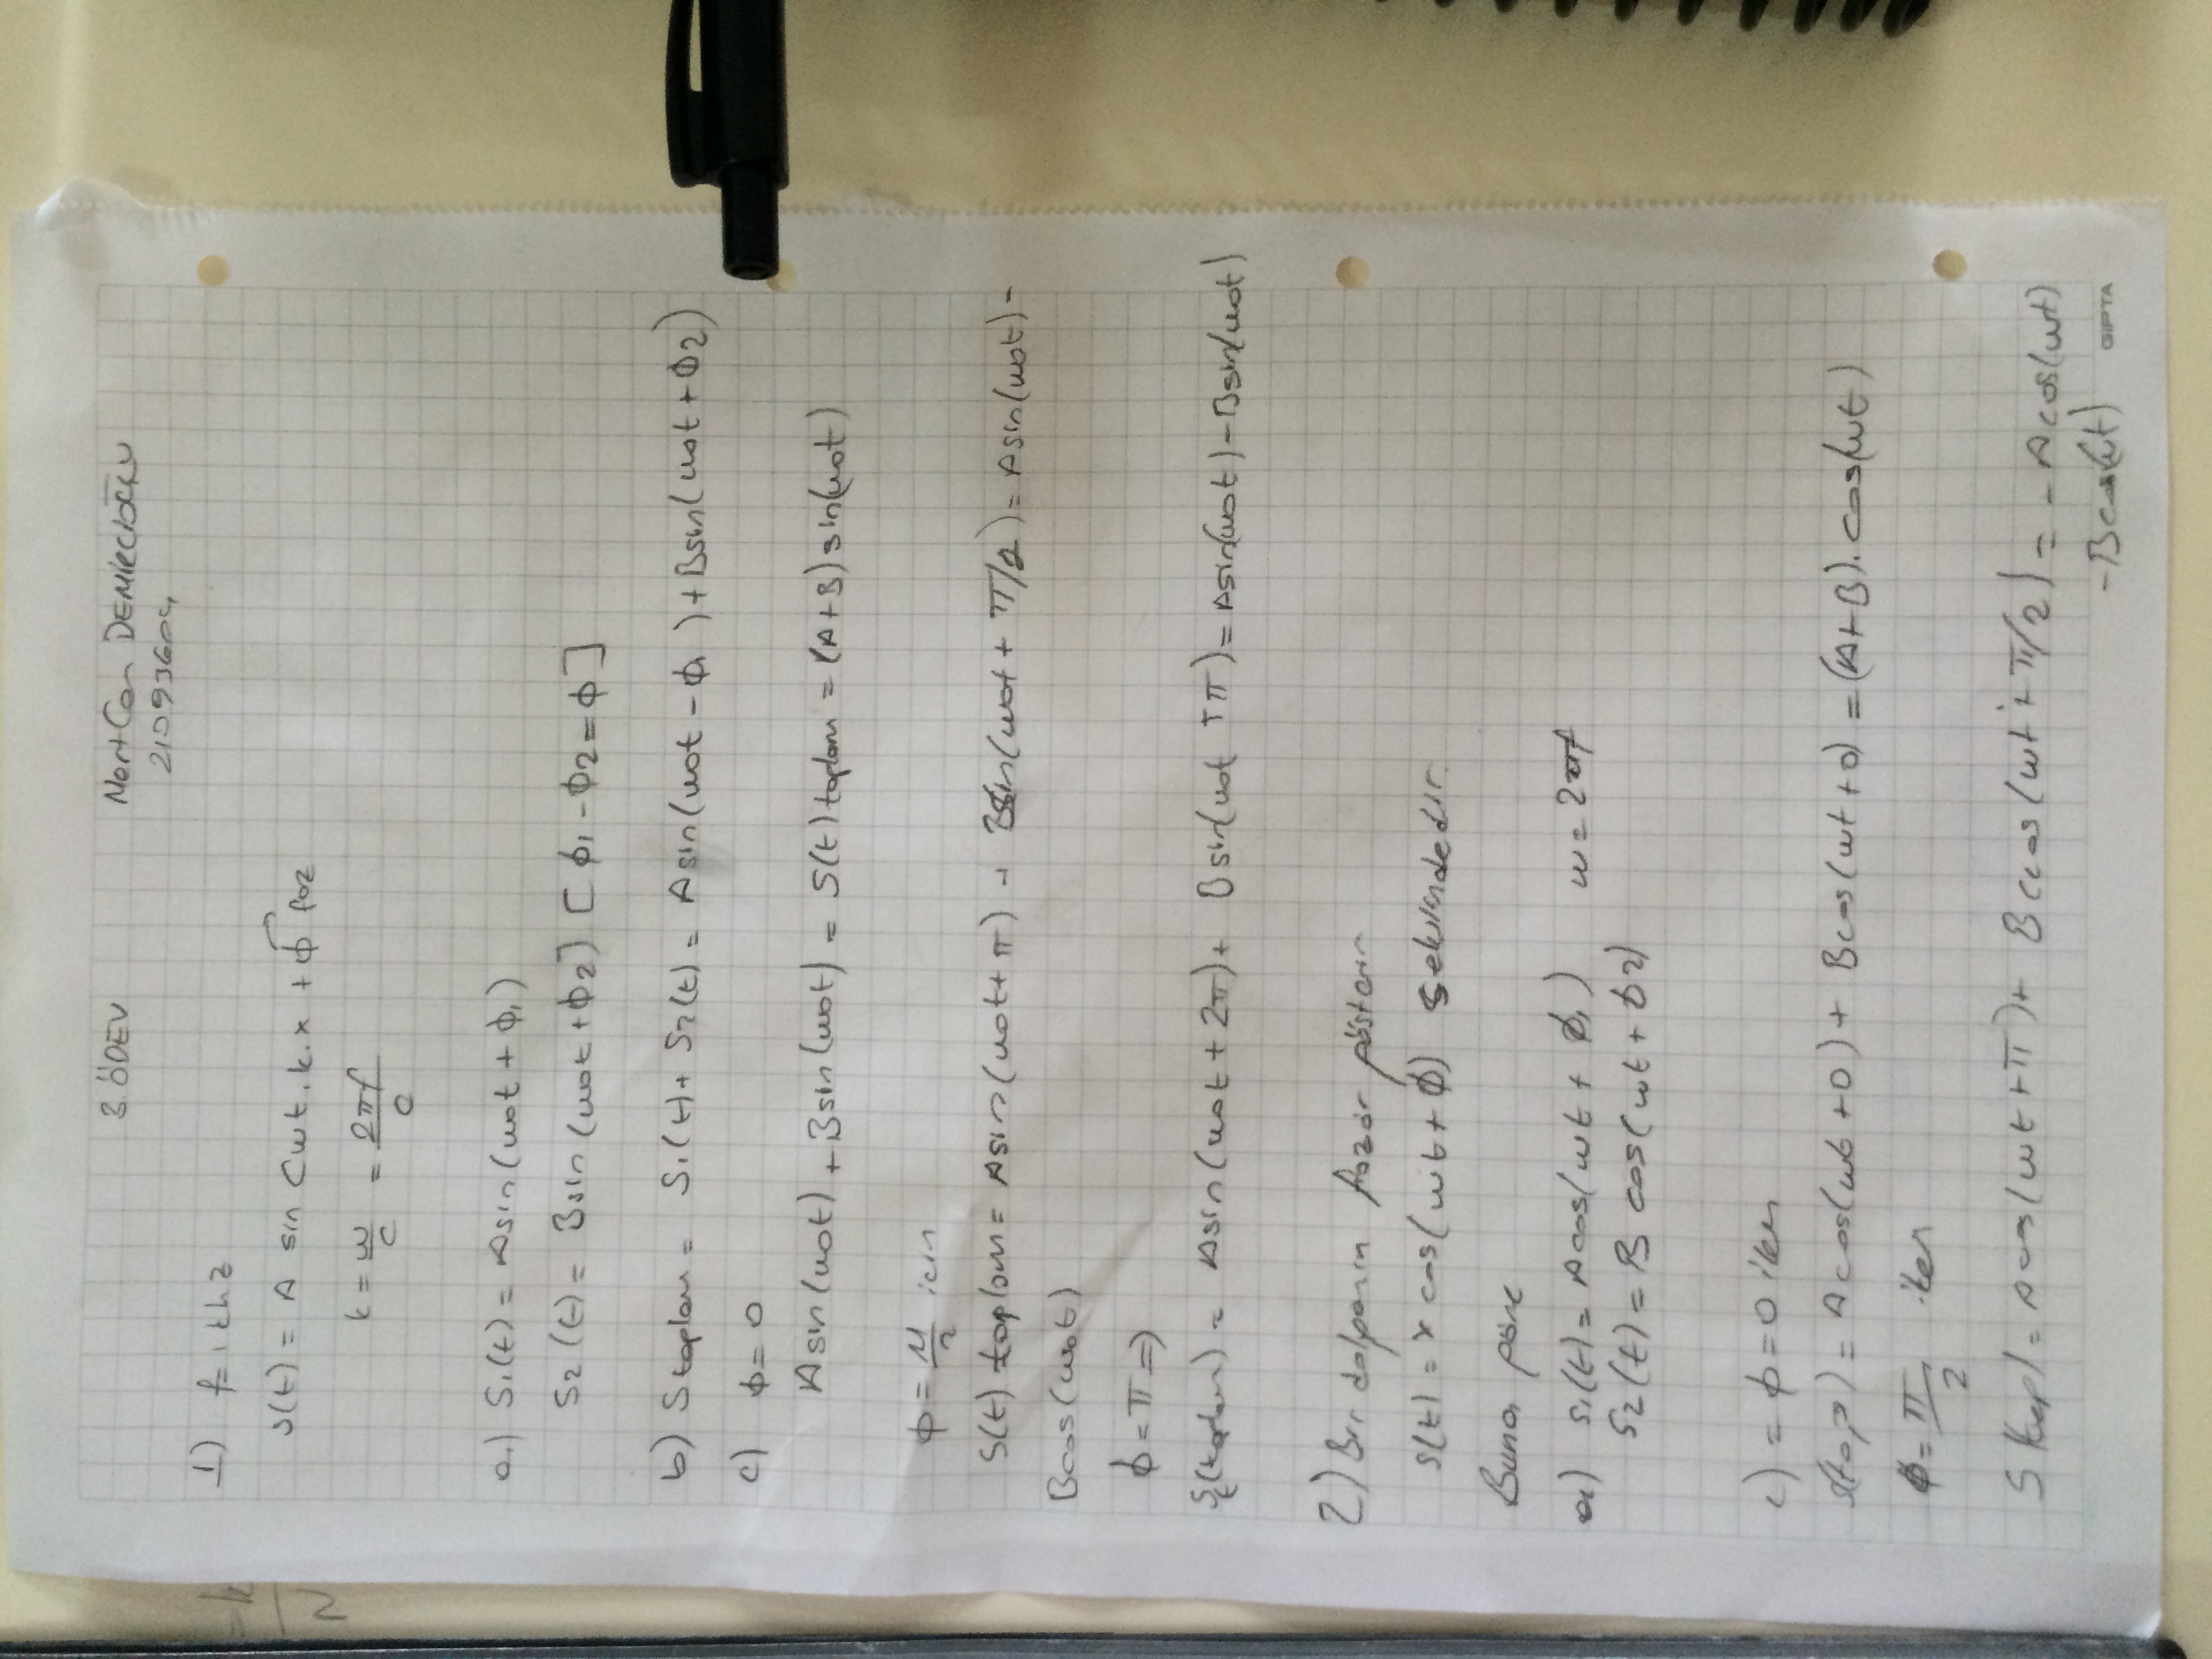 3. ÖDEV
MertCan DEMİRCİOĞLU
21093604
1) f=1khz
s(t) = A sin (wt.k.x + ϕ faz
k = w/c = 2πf/c
a.) S₁(t) = Asin(w₀t + ϕ₁)
S₂(t) = Bsin(w₀t+ϕ₂) [ϕ₁-ϕ₂=ϕ]
b) Stoplam = S₁(t)+S₂(t) = Asin(w₀t-ϕ₁)+Bsin(w₀t+ϕ₂)
c) ϕ=0
Asin(w₀t)+Bsin(w₀t) = S(t)toplam = (A+B)sin(w₀t)
ϕ=π/2 icin
S(t) toplam = Asin(w₀t+π) + Bsin(w₀t+π/2) = Asin(w₀t)-
Bcos(w₀t)
ϕ=π ⇒
S(toplam) = Asin(w₀t+2π)+ Bsin(w₀t+π) = Asin(w₀t)-Bsin(w₀t)
2) Bir dalganın fazör gösterim
s(t) = x cos(wt+ϕ) şeklindedir.
Buna göre
a) s₁(t) = Acos(wt+ϕ₁) w=2πf
S₂(t) = B cos(wt+ϕ2)
c) = ϕ=0 iken
s(top) = Acos(wt+0)+ Bcos(wt+0) = (A+B).cos(wt)
ϕ=π/2 iken
S(top) = Acos(wt+π)+ Bcos(wt+π/2) = -Acos(wt)
-Bcos(wt)
GIPTA